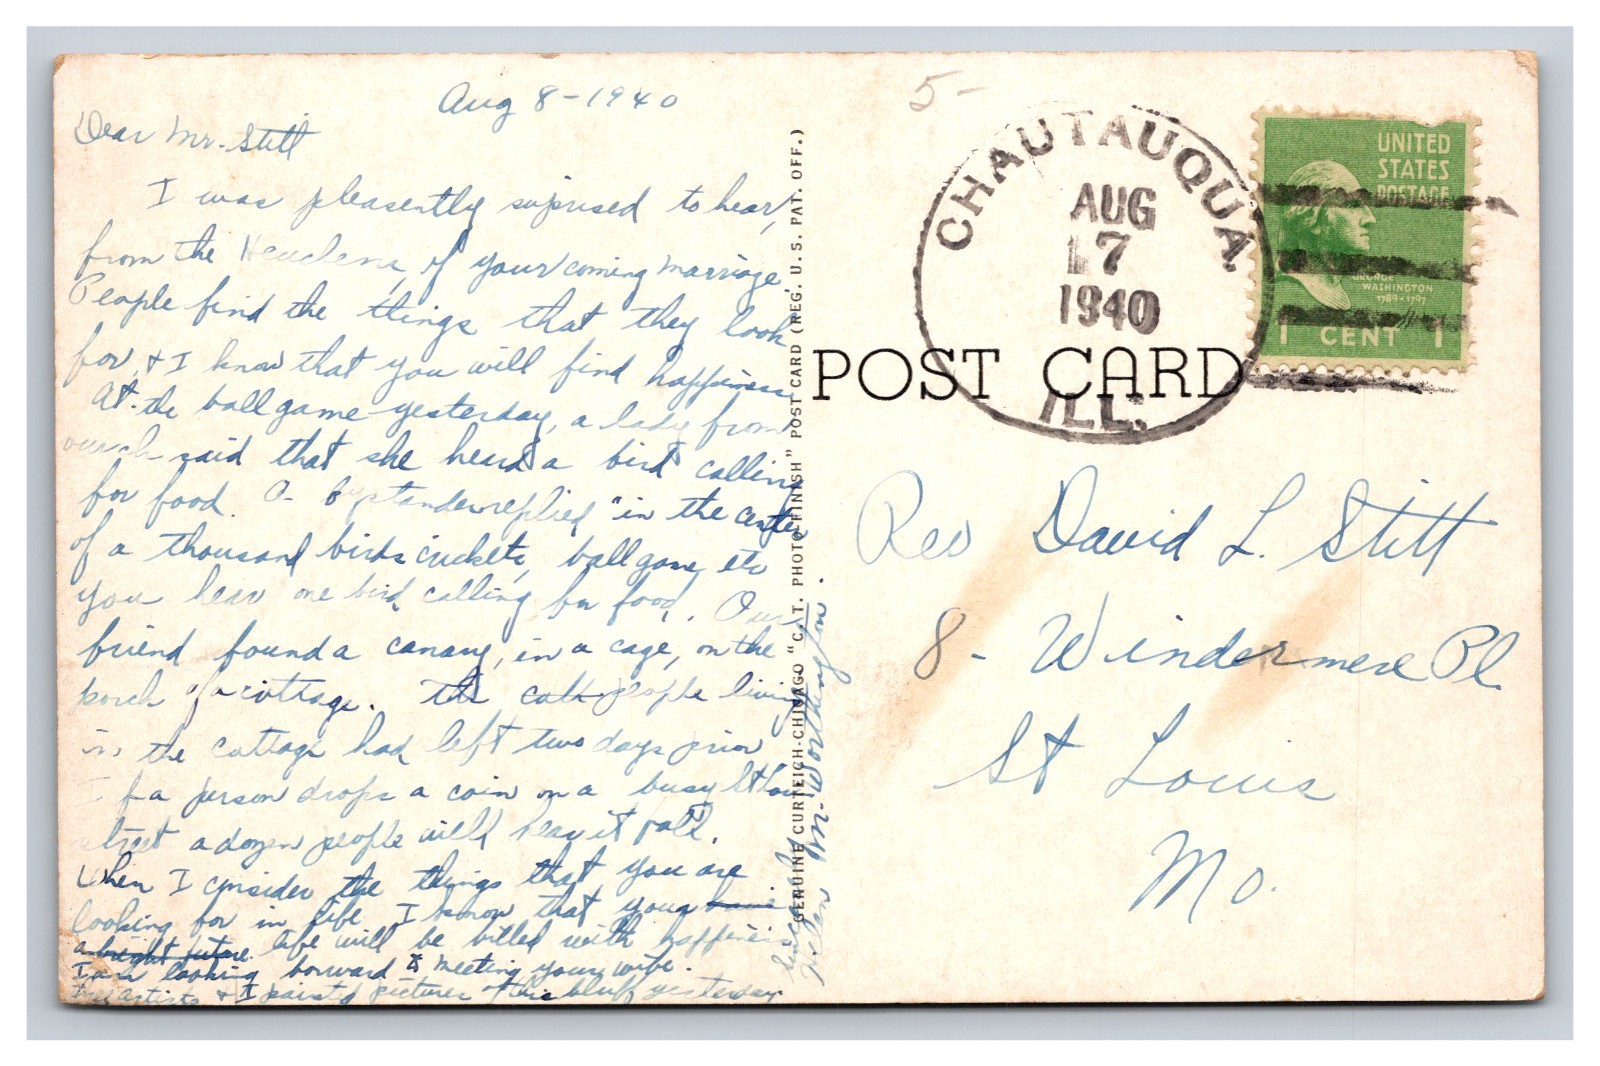 Aug 8-1940
Dear Mr. Stitt
I was pleasently suprised to hear,
from the of your coming marriage.
People find the things that they look
for, & I know that you will find happiness
At the ball game yesterday, a lady from
said that she heard a bird calling
for food. A bystander replied "in the center
of a thousand birds crickets, ball game, etc
you hear one bird calling for food. Our
friend found a canary, in a cage, on the
porch of a cottage. people living
in the cottage had left two days prior
If a person drops a coin on a busy St Lou
street a dozen people will hear it fall.
When I consider the things that you are
looking for in life I know that your
a bright future. life will be filled with happiness
I am looking forward to meeting your wife.
artists & I painted pictures of this bluff yesterday
Sincerely
Helen M. Worthington.
GENUINE CURTEICH-CHICAGO "C. T. PHOTO-FINISH" POST CARD (REG. U. S. PAT. OFF.)
5-
CHAUTAUQUA.
AUG
17
1940
ILL.
UNITED
STATES
POSTAGE
GEORGE
WASHINGTON
1789-1797
1 CENT 1
POST CARD
Rev David L. Stitt
8 - Windermere Pl.
St Louis
Mo.